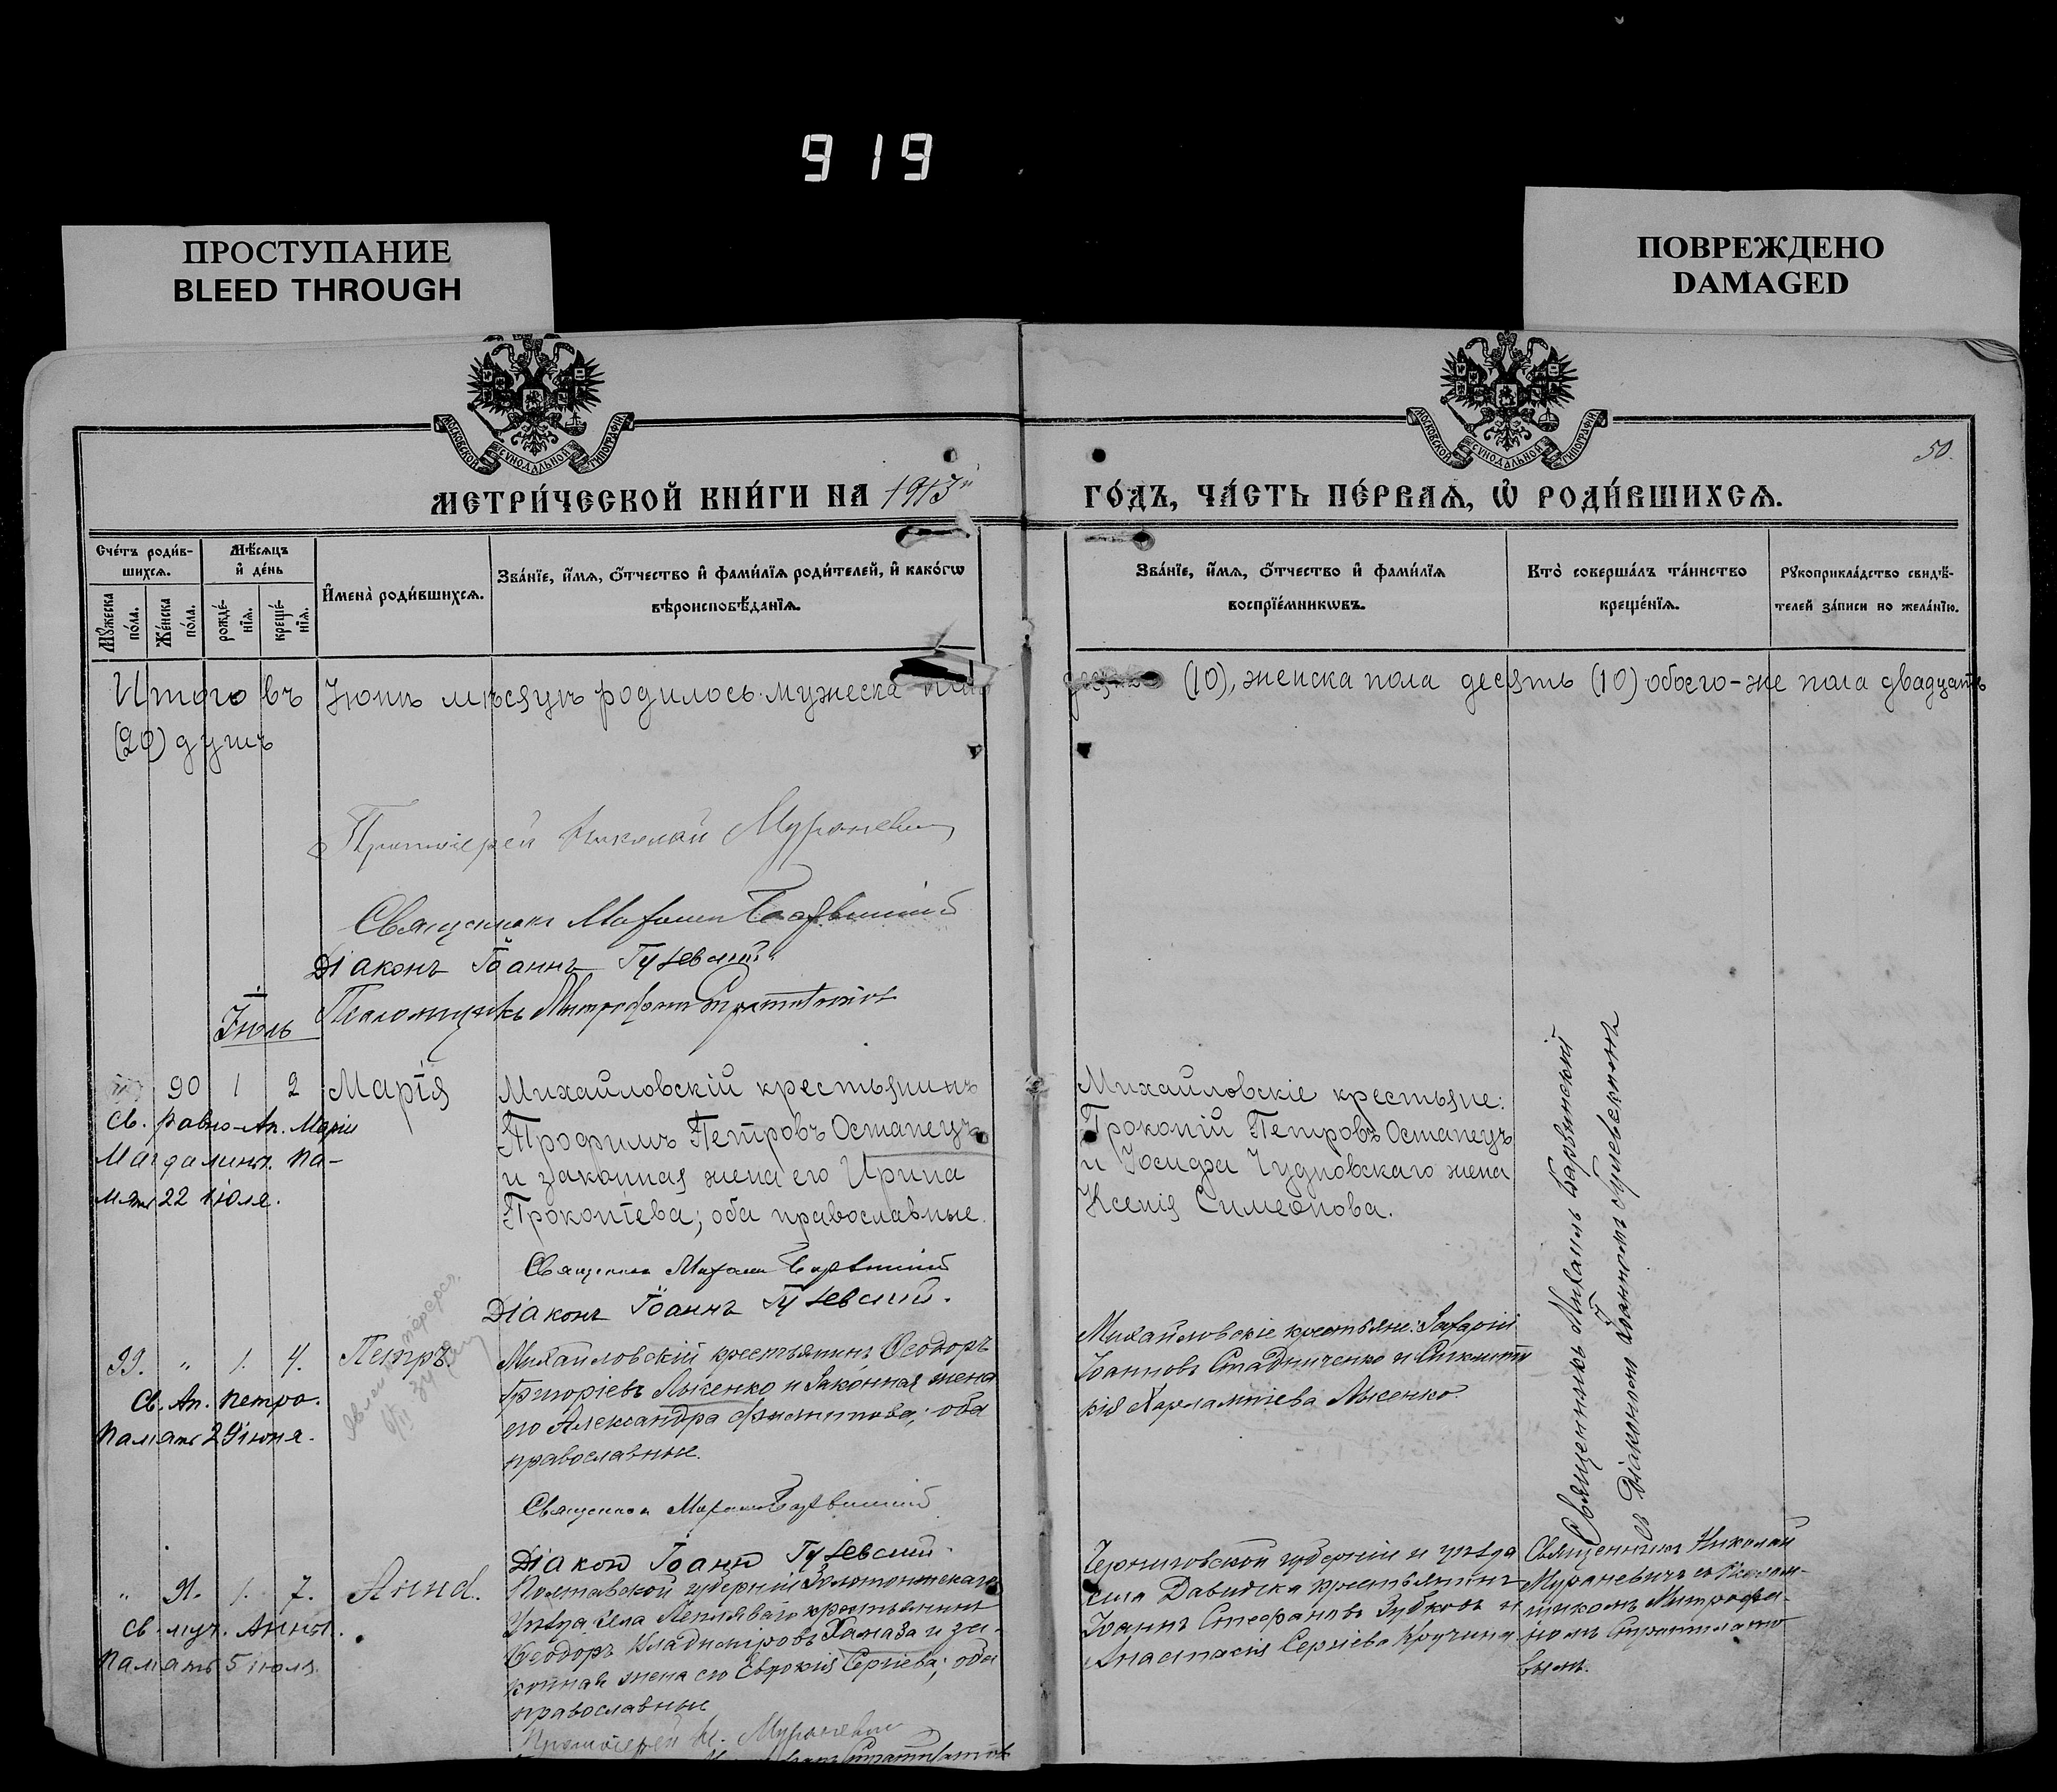 919
ПРОСТУПАНИЕ
BLEED THROUGH
ПОВРЕЖДЕНО
DAMAGED
МОСКОВСКОЙ СѴНОДАЛЬНОЙ ТИПОГРАФІИ
МОСКОВСКОЙ СѴНОДАЛЬНОЙ ТИПОГРАФІИ
50.
МЕТРИ́ЧЕСКОЙ КНИ́ГИ НА 1913й
ГО́ДЪ, ЧА́СТЬ ПЕ́РВАѦ, Ѡ҆ РОДИ́ВШИХСѦ.
Сче́тъ роди́в-
шихсѧ.
Мѣ́сѧцъ
и҆ де́нь
Мꙋ́жеска
по́ла.
Же́нска
по́ла.
рожде́-
нїѧ.
креще́-
нїѧ.
И҆мена̀ роди́вшихсѧ.
Зва́нїе, и҆́мѧ, ѻ҆́тчество и҆ фами́лїѧ роди́телей, и҆ како́гѡ
вѣроисповѣ́данїѧ.
Зва́нїе, и҆́мѧ, ѻ҆́тчество и҆ фами́лїѧ
воспрїе́мникѡвъ.
Кто̀ соверша́лъ та́инство
креще́нїѧ.
Рꙋкоприкла́дство свидѣ́-
телей за́писи по жела́нїю.
Итого въ Іюнѣ мѣсяцѣ родилось: мужеска (10), женска пола десять (10) обоего-же пола двадцать
(20) душъ
Протоіерей Николай Мураневич
Священникъ Михаил Барвинскій
Діаконъ Іоаннъ Гулевскій
Псаломщикъ Митрофанъ Стратилатовъ
Іюль
90 1 2 Марія
Св. равно-Ап. Маріи
Магдалины. Па-
мять 22 іюля.
Михайловскій крестьянинъ
Трофимъ Петровъ Остапецъ
и законная жена его Ирина
Прокопіева; оба православные.
Священникъ Михаил Барвинскій
Діаконъ Іоаннъ Гулевскій.
Михайловскіе крестьяне:
Прокопій Петровъ Остапецъ
и Іосифа Чудновскаго жена
Ксенія Симеонова.
Священникъ Михаилъ Барвинскій
съ Діакономъ Іоанномъ Гулевскимъ
99. " 1. 4. Петръ.
Св. Ап. Петра.
Память 29 іюня.
Михайловскій крестьянинъ Ѳеодоръ
Григоріевъ Лысенко и законная жена
его Александра Филиппова; оба
православные.
Священникъ Михаил Барвинскій
Діакон Іоанн Гулевскій.
Михайловскіе крестьяне: Захарій
Іоанновъ Стадниченко и
рія Харлампіева Лысенко.
" 91. 1. 7. Анна.
Св. муч. Анны.
Память 5 іюля.
Полтавской губерніи Золотоношскаго
уѣзда села крестьянинъ
Ѳеодоръ Владиміровъ и за-
конная жена его Евдокія Сергіева; оба
православные
Протоіерей Н. Мураневич
Черниговской губерніи и уѣзда
села крестьянинъ
Іоаннъ Стефановъ Зубковъ и
Анастасія Сергіева Кручина.
Священникъ Николай
Мураневичъ съ Псалом-
щикомъ Митрофа-
номъ Стратилато
вымъ.